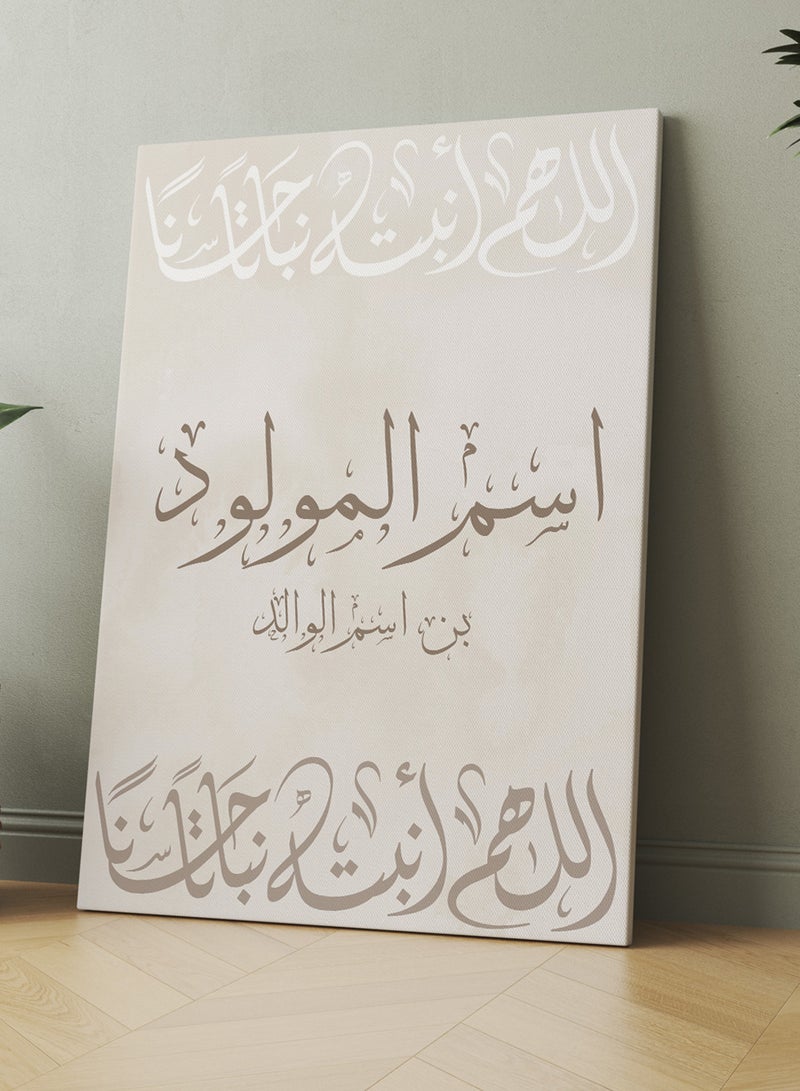 اللهم أنبته نباتا حسنا
اسم المولود
بن اسم الوالد
اللهم أنبته نباتا حسنا